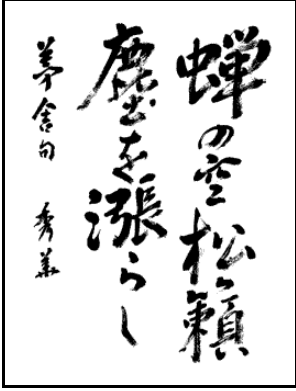 蝉の空松籟
塵を漲らし
茅舎句 秀